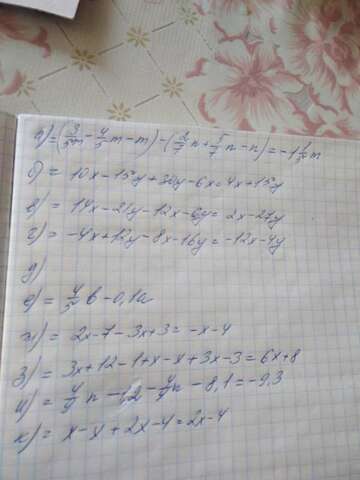 а) = (3/5m - 4/5m - m) - (2/7n + 5/7n - n) = -1 1/5 m
б) = 10x - 15y + 30y - 6x = 4x + 15y
в) = 14x - 21y - 12x - 6y = 2x - 27y
г) = -4x + 12y - 8x - 16y = -12x - 4y
д)
е) = 4/5 b - 0,1a
ж) = 2x - 7 - 3x + 3 = -x - 4
з) = 3x + 12 - 1 + x - x + 3x - 3 = 6x + 8
и) = 4/9 n - 1,2 - 4/9 n - 8,1 = -9,3
к) = x - x + 2x - 4 = 2x - 4